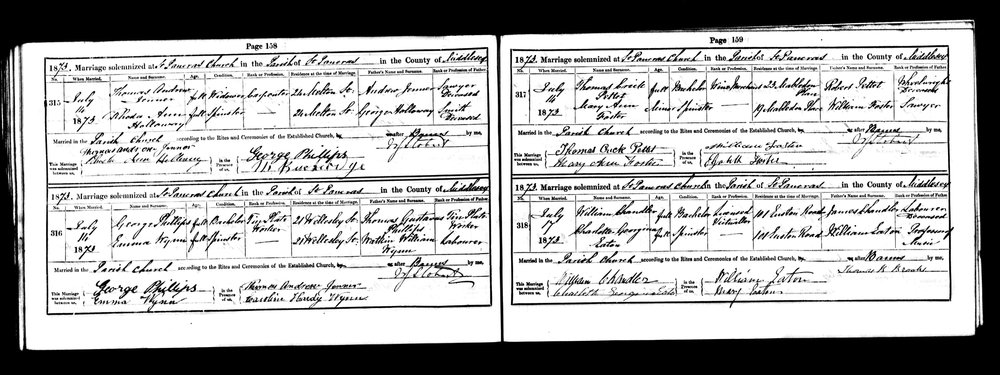 Page 158
1873. Marriage solemnized at St Pancras Church in the Parish of St Pancras in the County of Middlesex
When Married. Name and Surname. Age. Condition. Rank or Profession. Residence at the time of Marriage. Father's Name and Surname. Rank or Profession of Father.
315 July 14 1873
Thomas Andrew Jenner full Widower Carpenter 24 Melton St. Andrew Jenner Sawyer Deceased
Rhoda Ann Holloway full Spinster 24 Melton St. George Holloway Smith Deceased
Married in the Parish Church according to the Rites and Ceremonies of the Established Church, by after Banns by me,
This Marriage was solemnized between us, Thomas Andrew Jenner
in the Presence of us, George Phillips
1873. Marriage solemnized at St Pancras Church in the Parish of St Pancras in the County of Middlesex
When Married. Name and Surname. Age. Condition. Rank or Profession. Residence at the time of Marriage. Father's Name and Surname. Rank or Profession of Father.
316 July 14 1873
George Phillips full Bachelor Tin Plate Worker 21 Wellesley St. Thomas Gustavus Phillips Tin Plate Worker
Emma Wynn full Spinster 21 Wellesley St. William Wynn Labourer
Married in the Parish Church according to the Rites and Ceremonies of the Established Church, by after Banns by me,
This Marriage was solemnized between us, George Phillips Emma Wynn
in the Presence of us, Thomas Andrew Jenner Hardy Wynn
Page 159
1873. Marriage solemnized at St Pancras Church in the Parish of St Pancras in the County of Middlesex
When Married. Name and Surname. Age. Condition. Rank or Profession. Residence at the time of Marriage. Father's Name and Surname. Rank or Profession of Father.
317 July 14 1873
Thomas Pettet full Bachelor 23 Mabledon Place Robert Pettet Wheelwright Deceased
Mary Ann Foster Minor Spinster Mabledon Place William Foster Sawyer
Married in the Parish Church according to the Rites and Ceremonies of the Established Church, by after Banns by me,
This Marriage was solemnized between us, Thomas Mary Ann Foster
in the Presence of us, William Foster Foster
1873. Marriage solemnized at St Pancras Church in the Parish of St Pancras in the County of Middlesex
When Married. Name and Surname. Age. Condition. Rank or Profession. Residence at the time of Marriage. Father's Name and Surname. Rank or Profession of Father.
318 July 17 1873
William Chandler full Bachelor Licensed Victualler 101 Euston Road James Chandler Labourer Deceased
Charlotte Georgina Eaton full Spinster 101 Euston Road William Eaton Professor of Music
Married in the Parish Church according to the Rites and Ceremonies of the Established Church, by after Banns by me,
Thomas R Brooks
This Marriage was solemnized between us, William Chandler Charlotte Georgina Eaton
in the Presence of us, William Eaton Mary Eaton